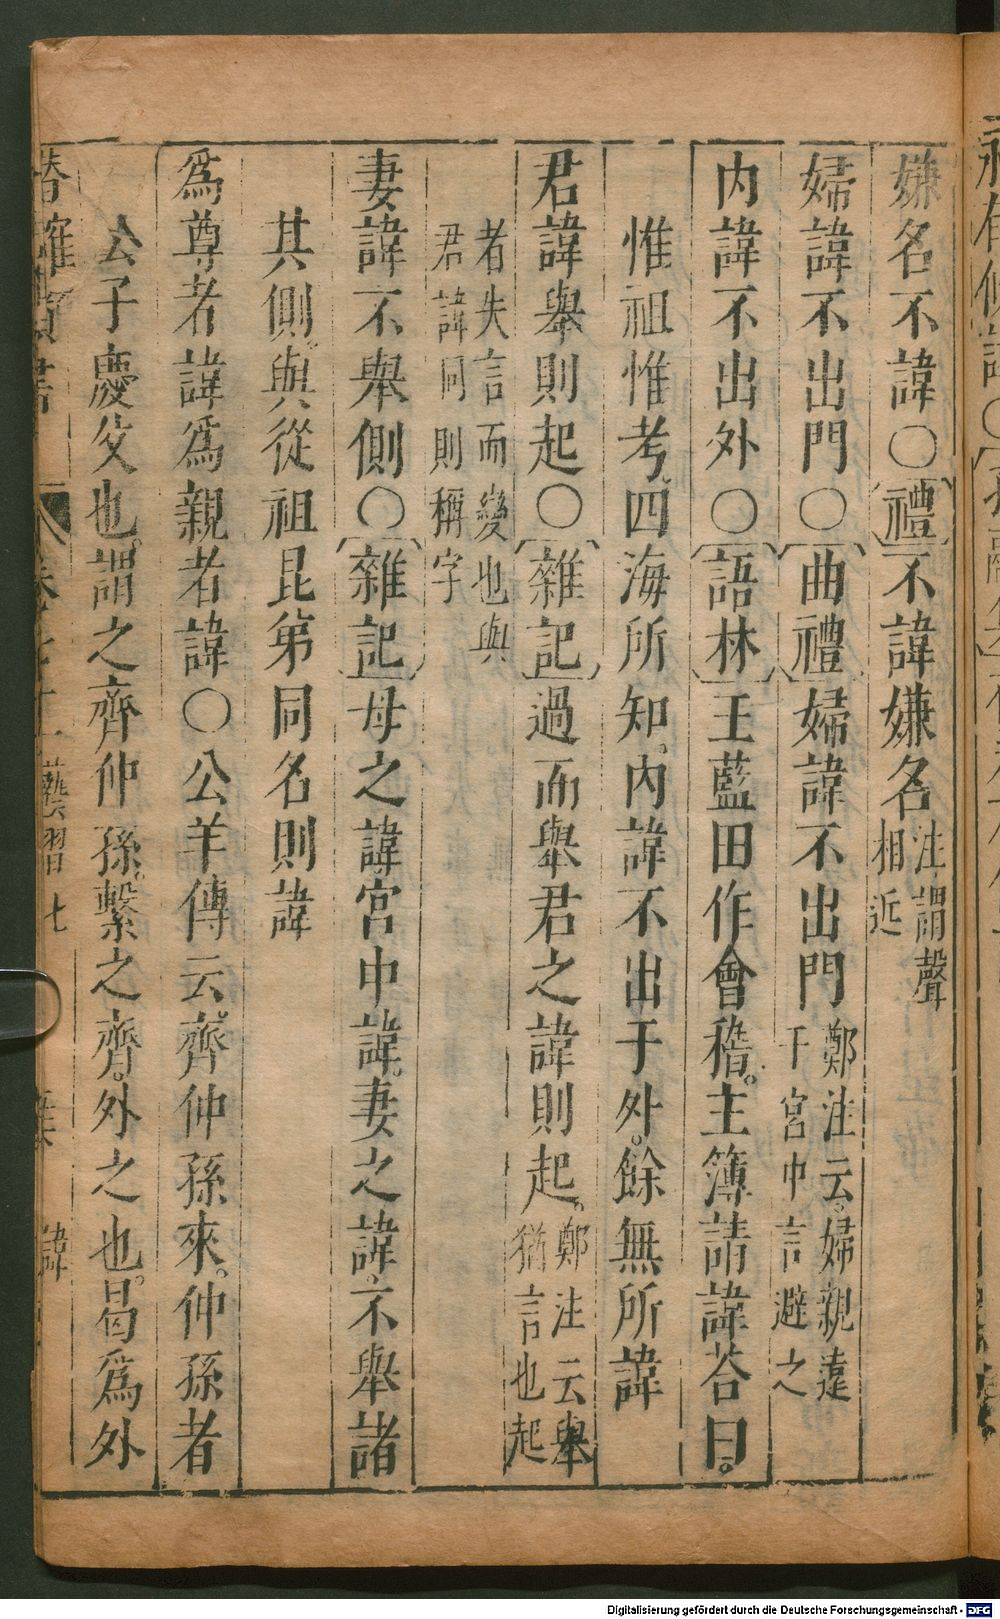 嫌名不諱○禮不諱嫌名注謂聲相近
婦諱不出門○曲禮婦諱不出門鄭注云婦親遠于宮中言避之
內諱不出外○語林王藍田作會稽。主簿請諱荅曰。
惟祖惟考四海所知。內諱不出于外。餘無所諱
君諱舉則起○雜記過而舉君之諱則起。鄭注云舉猶言也起
者失言而變也與君諱同則稱字
妻諱不舉側○雜記母之諱宮中諱。妻之諱不舉諸
其側。與從祖昆第同名則諱
爲尊者諱爲親者諱○公羊傳云齊仲孫來。仲孫者
公子慶父也。謂之齊仲孫。繫之齊。外之也。曷爲外
Digitalisierung gefördert durch die Deutsche Forschungsgemeinschaft - DFG